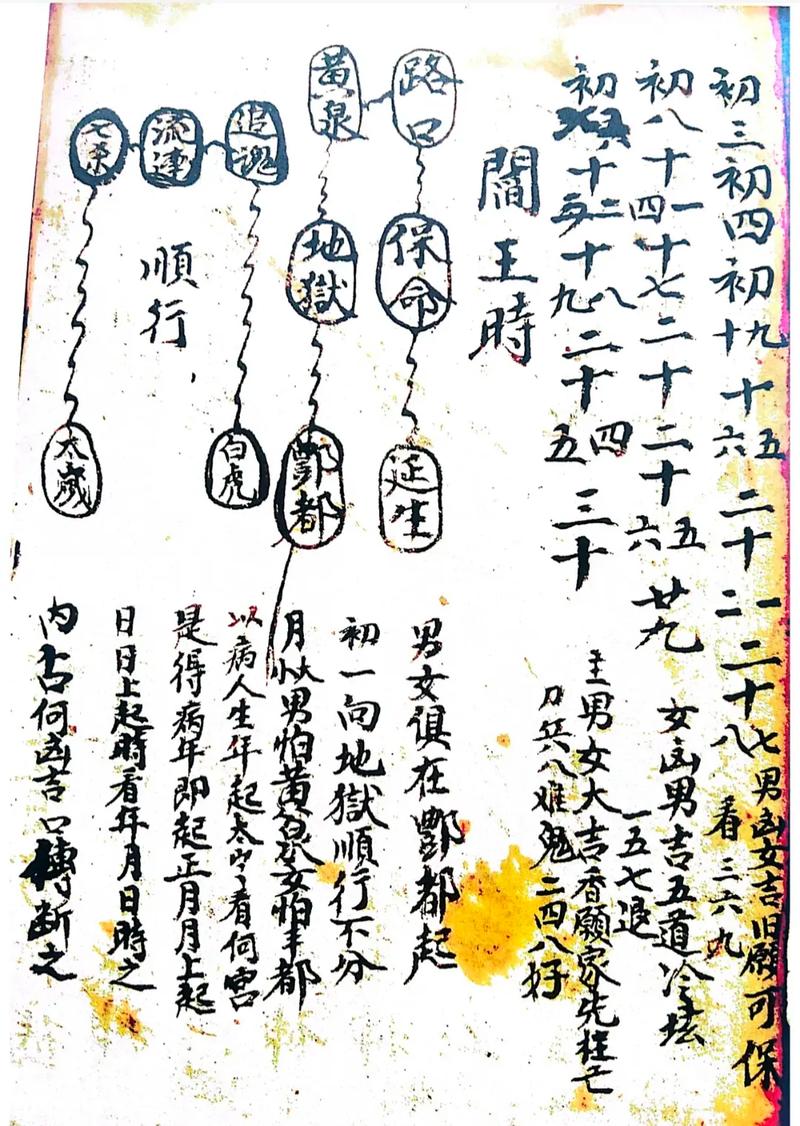 初三初四初九十十五六二十一二二十七八男凶女吉旧願可保
看三六九
初八十一四十七二十二十五六廿九女凶男吉五道冷坛
一五七退
初六十十二十八九二十四五三十主男女大吉香願家先枉亡
刀兵八难鬼二四八好
閻王時
路口
保命
延生
黄泉
地獄
酆都
追魂
白虎
流連
順行
七杀
太歲
男女俱在酆都起
初一向地獄順行不分
月大小男怕黄泉女怕丰都
以病人生年起太歲看何宮
是得病年即起正月月上起
日日上起時看年月日時之
内占何凶吉口傳断之